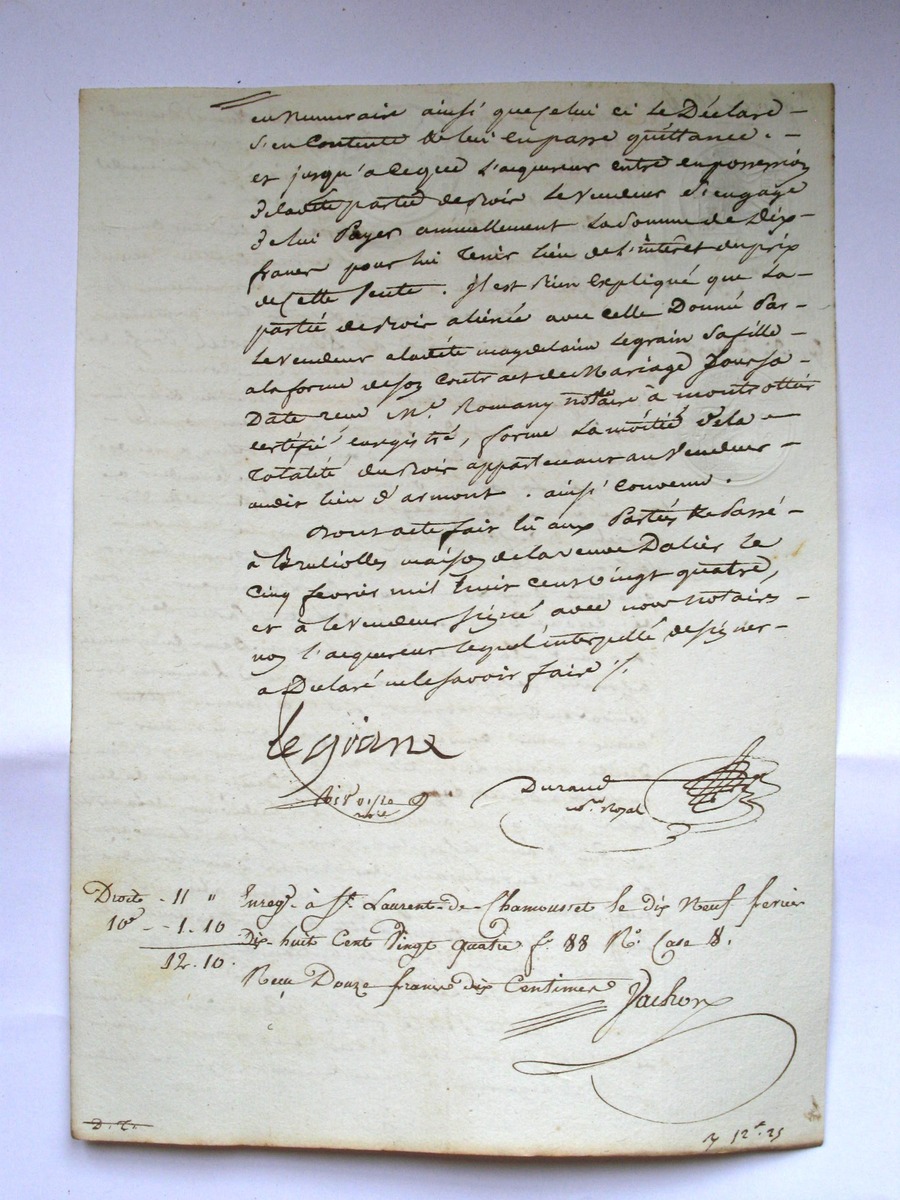 en Numeraire ainsi que celui ci le Déclare
s'en Contente & lui en passe quittance.
et jusqu'a ce que l'acquereur entre en possession
de la dite partie de bois le vendeur s'engage
de lui Payer annuellement la somme de Dix
francs pour lui tenir lieu de l'intèrêt du prix
de Cette Vente. il est bien Expliqué que la
partie de bois aliénée avec celle Donné Par
le vendeur a la dite magdelaine Legrain sa fille
a la forme de son contrat de Mariage sa
Date reçu Me. Romany notaire à montrottier
certifié enregistré, forme la moitié de la
totalité du bois appartenant au vendeur
audit lieu d'armont. ainsi Convenu.
Dont acte fait lû aux Parties & Passé
à Brullioles maison de la veuve Dalier le
Cinq fevrier mil huit cent vingt quatre,
et à le vendeur signé avec nous notaires
non l'acquereur lequel interpellé de signer
a Déclaré ne le savoir faire ./.
legrand
Durand
nore. Royal
Droits - 11 " Enregé. à St. Laurent-de-Chamousset le dix Neuf fevrier
10e - - 1. 10 Dix-huit Cent Vingt quatre fo. 88 Ro. Case 8.
12. 10. Reçu Douze francs dix Centimes
D. T.